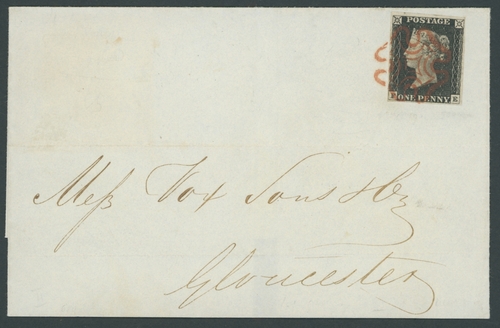 POSTAGE
ONE PENNY
E
Messrs Vox Sons & Co
Gloucester